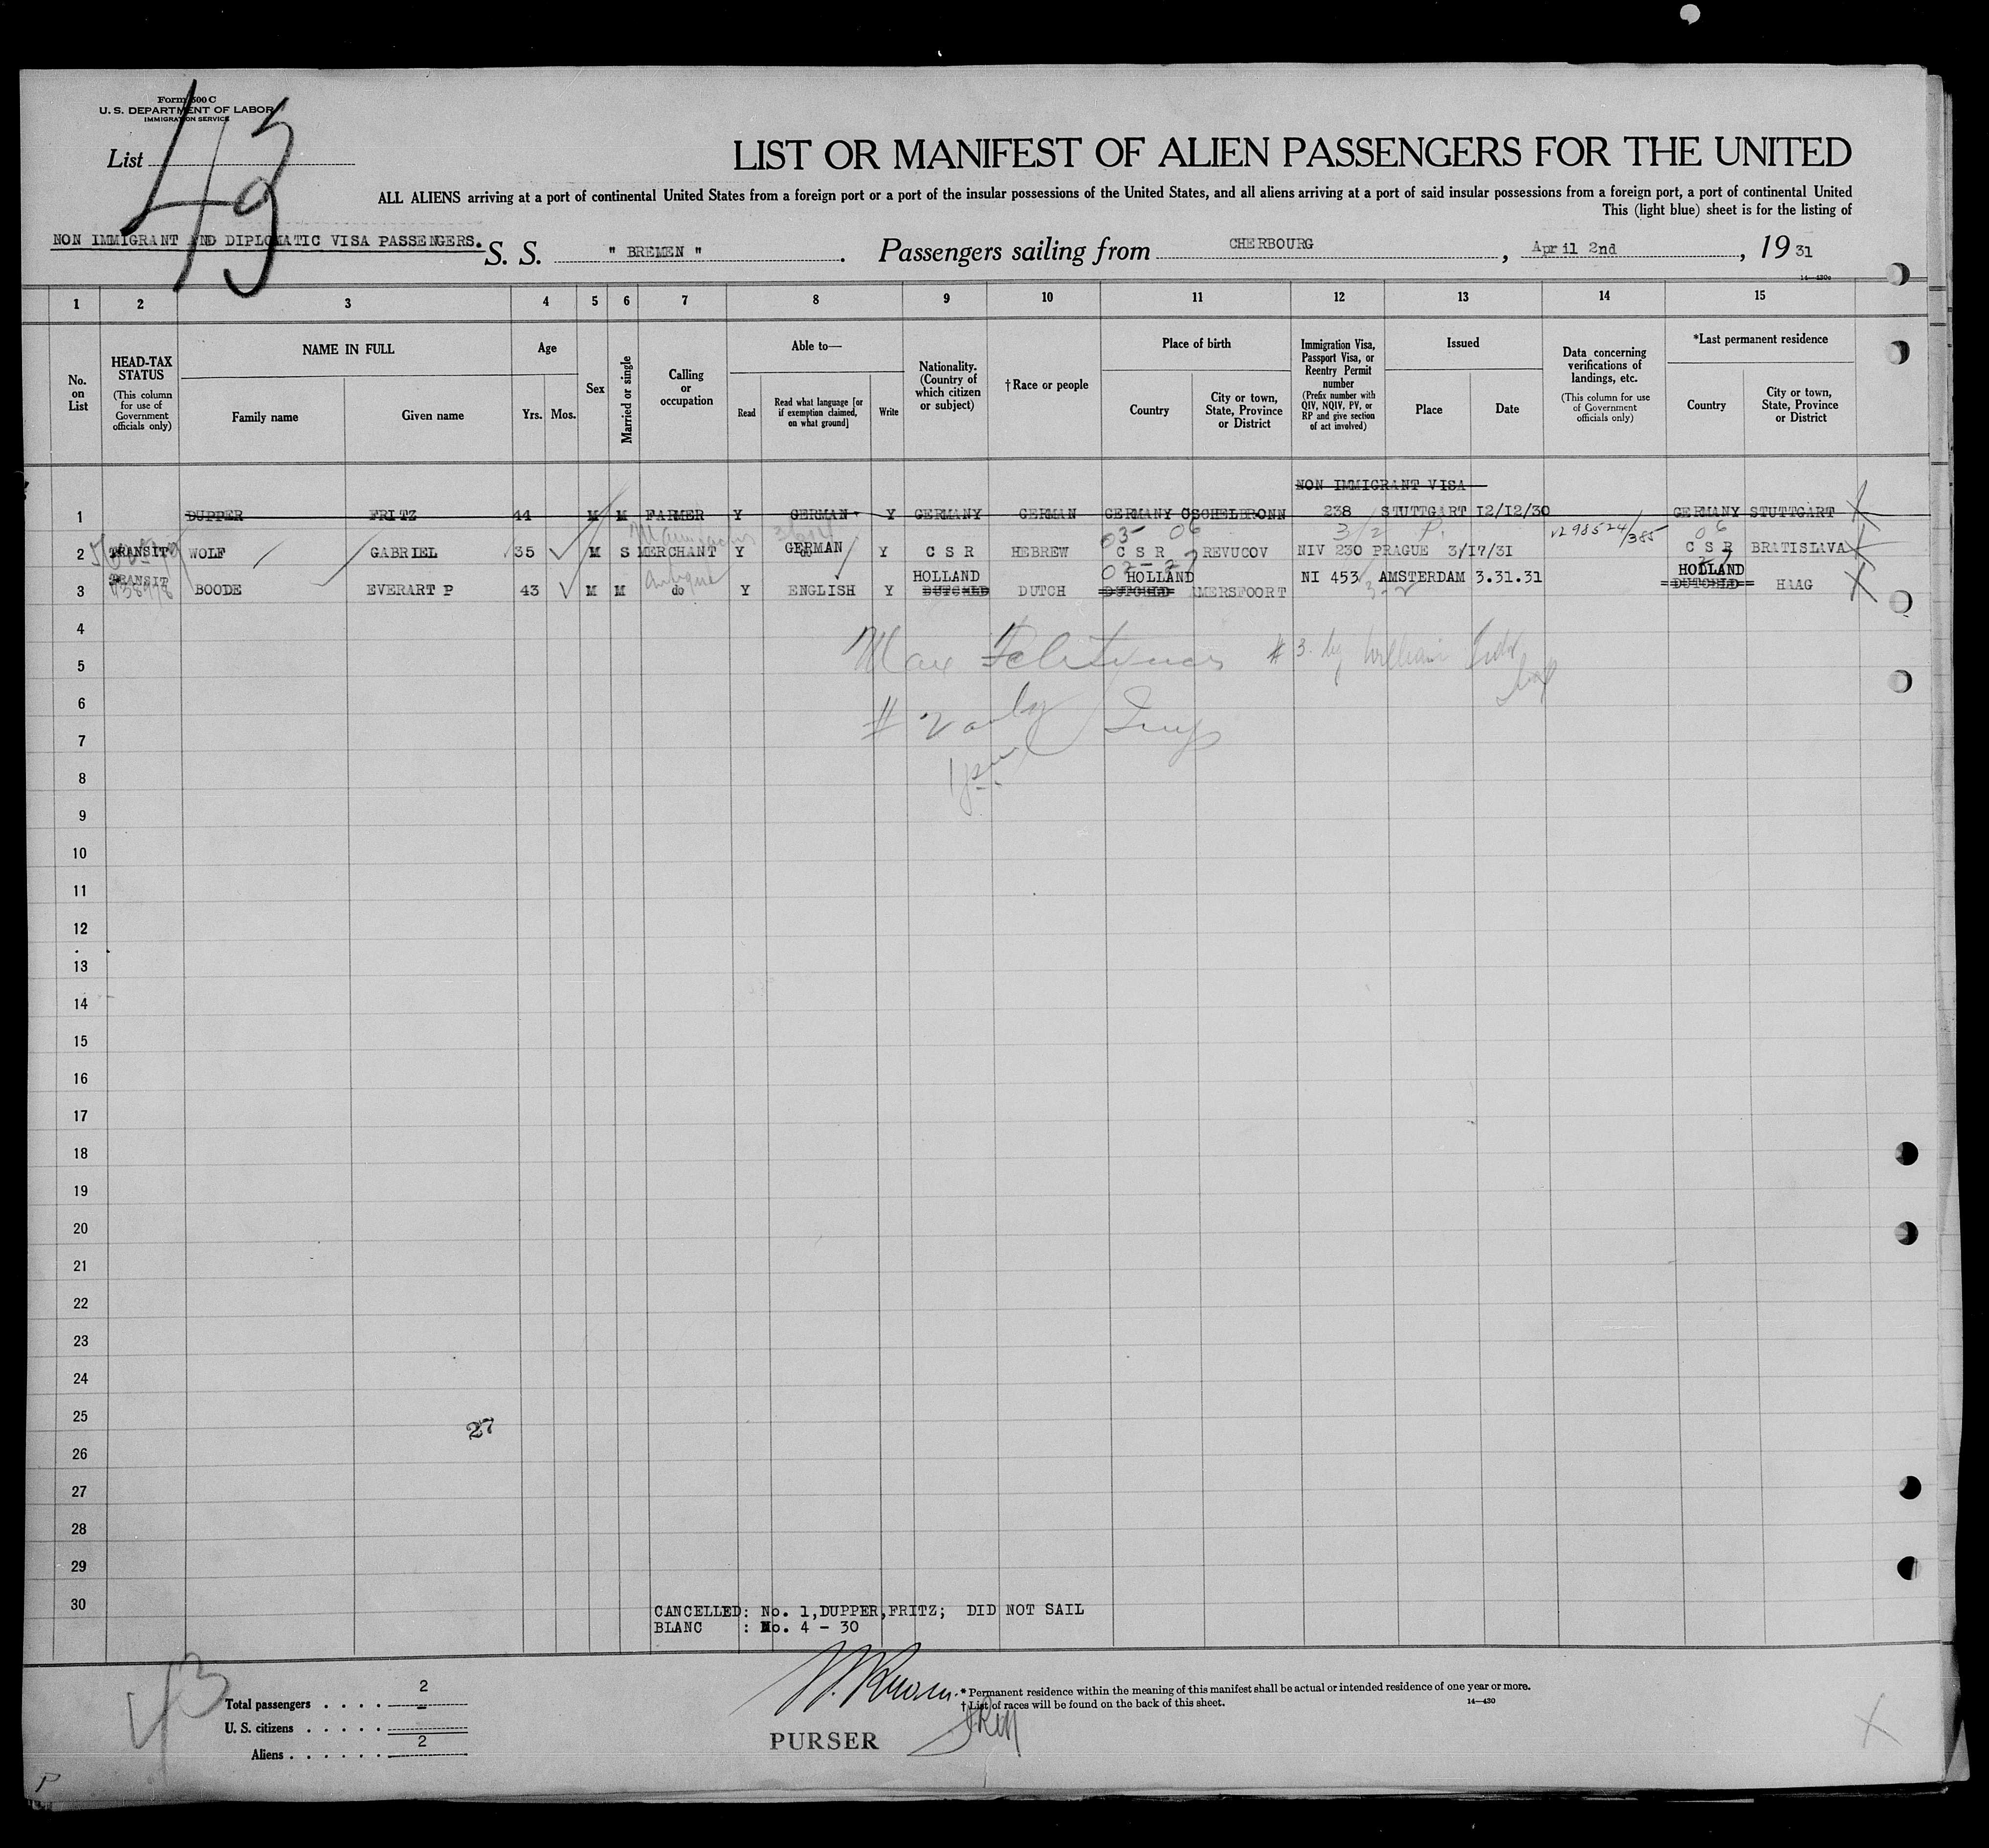 Form 500 C
U. S. DEPARTMENT OF LABOR
IMMIGRATION SERVICE
List
43
LIST OR MANIFEST OF ALIEN PASSENGERS FOR THE UNITED
ALL ALIENS arriving at a port of continental United States from a foreign port or a port of the insular possessions of the United States, and all aliens arriving at a port of said insular possessions from a foreign port, a port of continental United
This (light blue) sheet is for the listing of
NON IMMIGRANT AND DIPLOMATIC VISA PASSENGERS. S. S. " BREMEN ". Passengers sailing from CHERBOURG, April 2nd, 19 31
14—430c
1 2 3 4 5 6 7 8 9 10 11 12 13 14 15
No. on List
HEAD-TAX STATUS
(This column for use of Government officials only)
NAME IN FULL
Family name
Given name
Age
Yrs. Mos.
Sex
Married or single
Calling or occupation
Able to—
Read
Read what language [or if exemption claimed, on what ground]
Write
Nationality. (Country of which citizen or subject)
†Race or people
Place of birth
Country
City or town, State, Province or District
Immigration Visa, Passport Visa, or Reentry Permit number
(Prefix number with QIV, NQIV, PV, or RP and give section of act involved)
Issued
Place
Date
Data concerning verifications of landings, etc.
(This column for use of Government officials only)
*Last permanent residence
Country
City or town, State, Province or District
NON IMMIGRANT VISA
1 DUPPER FRITZ 44 M M FARMER Y GERMAN Y GERMANY GERMAN GERMANY OSCHELBRONN 238 STUTTGART 12/12/30 GERMANY STUTTGART
03 06 3/2 P. 06
2 TRANSIT WOLF GABRIEL 35 M S MERCHANT Y GERMAN Y C S R HEBREW C S R REVUCOV NIV 230 PRAGUE 3/17/31 C S R BRATISLAVA
02-27 27
TRANSIT HOLLAND HOLLAND NI 453 AMSTERDAM 3.31.31 HOLLAND
3 BOODE EVERART P 43 M M do Y ENGLISH Y DUTCH AMERSFOORT HAAG
antique
3-2
4
Max # 3 by William
5
6
# 2 only
7
8
9
10
11
12
13
14
15
16
17
18
19
20
21
22
23
24
25
27
26
27
28
29
30
CANCELLED: No. 1, DUPPER, FRITZ; DID NOT SAIL
BLANC : No. 4 - 30
43
Total passengers . . . . 2
U. S. citizens . . . . . -
Aliens . . . . . . 2
* Permanent residence within the meaning of this manifest shall be actual or intended residence of one year or more.
† List of races will be found on the back of this sheet.
14—430
PURSER
P